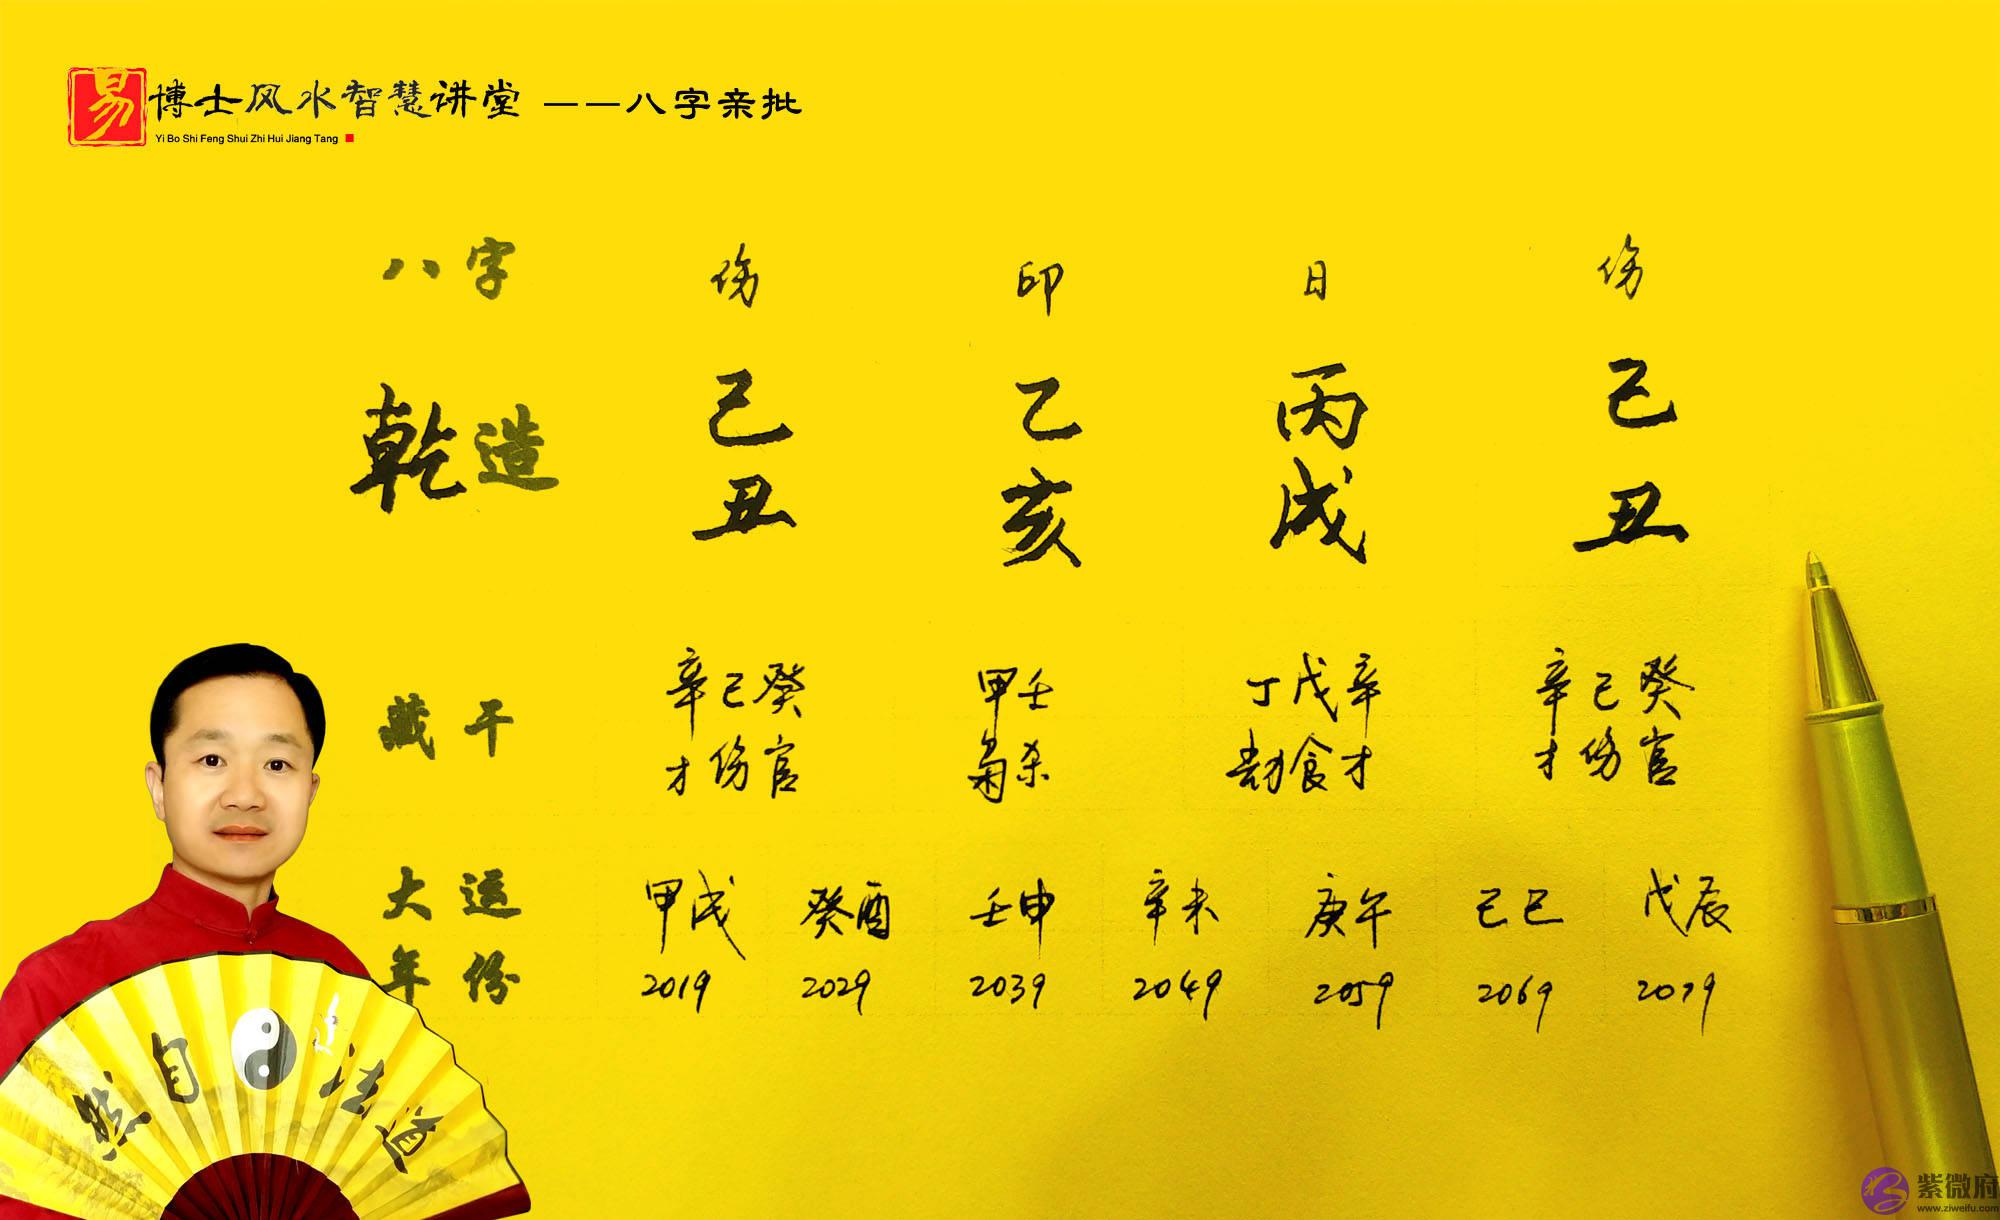 易博士风水智慧讲堂 ——八字亲批
Yi Bo Shi Feng Shui Zhi Hui Jiang Tang
八字 伤 印 日 伤
乾造 己 乙 丙 己
丑 亥 戌 丑
藏干 辛己癸 甲壬 丁戊辛 辛己癸
才伤官 枭杀 劫食才 才伤官
大运 甲戌 癸酉 壬申 辛未 庚午 己巳 戊辰
年份 2019 2029 2039 2049 2059 2069 2079
然自法道
紫微府
www.ziweifu.com